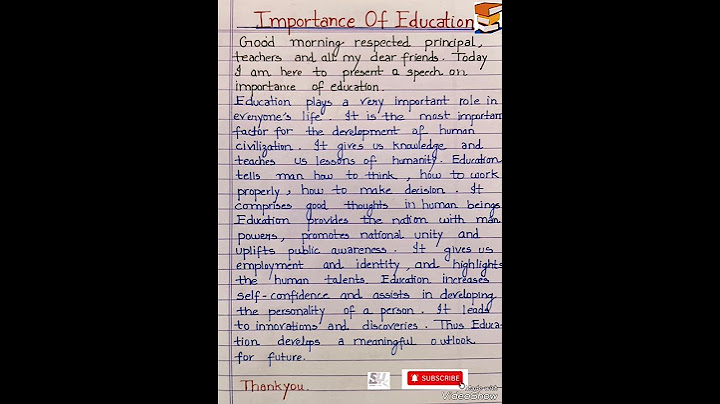 Importance Of Education
Good morning respected principal,
teachers and all my dear friends. Today
I am here to present a speech on
importance of education.
Education plays a very important role in
everyone's life. It is the most important
factor for the development of human
civilization. It gives us knowledge and
teaches us lessons of humanity. Education
tells man how to think, how to work
properly, how to make decision. It
comprises good thoughts in human beings.
Education provides the nation with man
powers, promotes national unity and
uplifts public awareness. It gives us
employment and identity, and highlights
the human talents. Education increases
self-confidence and assists in developing
the personality of a person. It leads
to innovations and discoveries. Thus Educa-
tion develops a meaningful outlook
for future.
Thankyou.
SUBSCRIBE
Made with
VideoShow